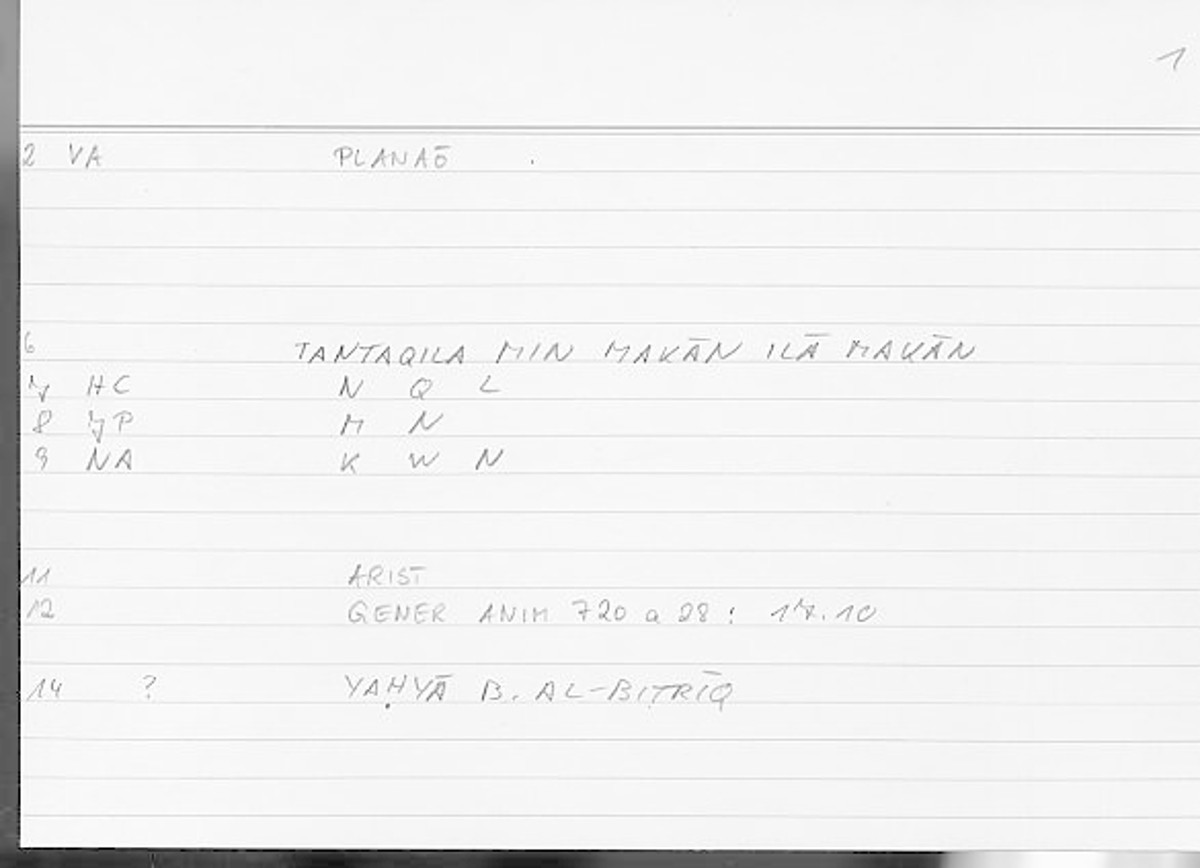 1
2 VA PLANAŌ .
6 TANTAQILA MIN MAKĀN ILĀ MAKĀN
7 HC N Q L
8 7P M N
9 NA K W N
11 ARIST
12 GENER ANIM 720 a 28 : 17.10
14 ? YAḤYĀ B. AL-BIṬRĪQ